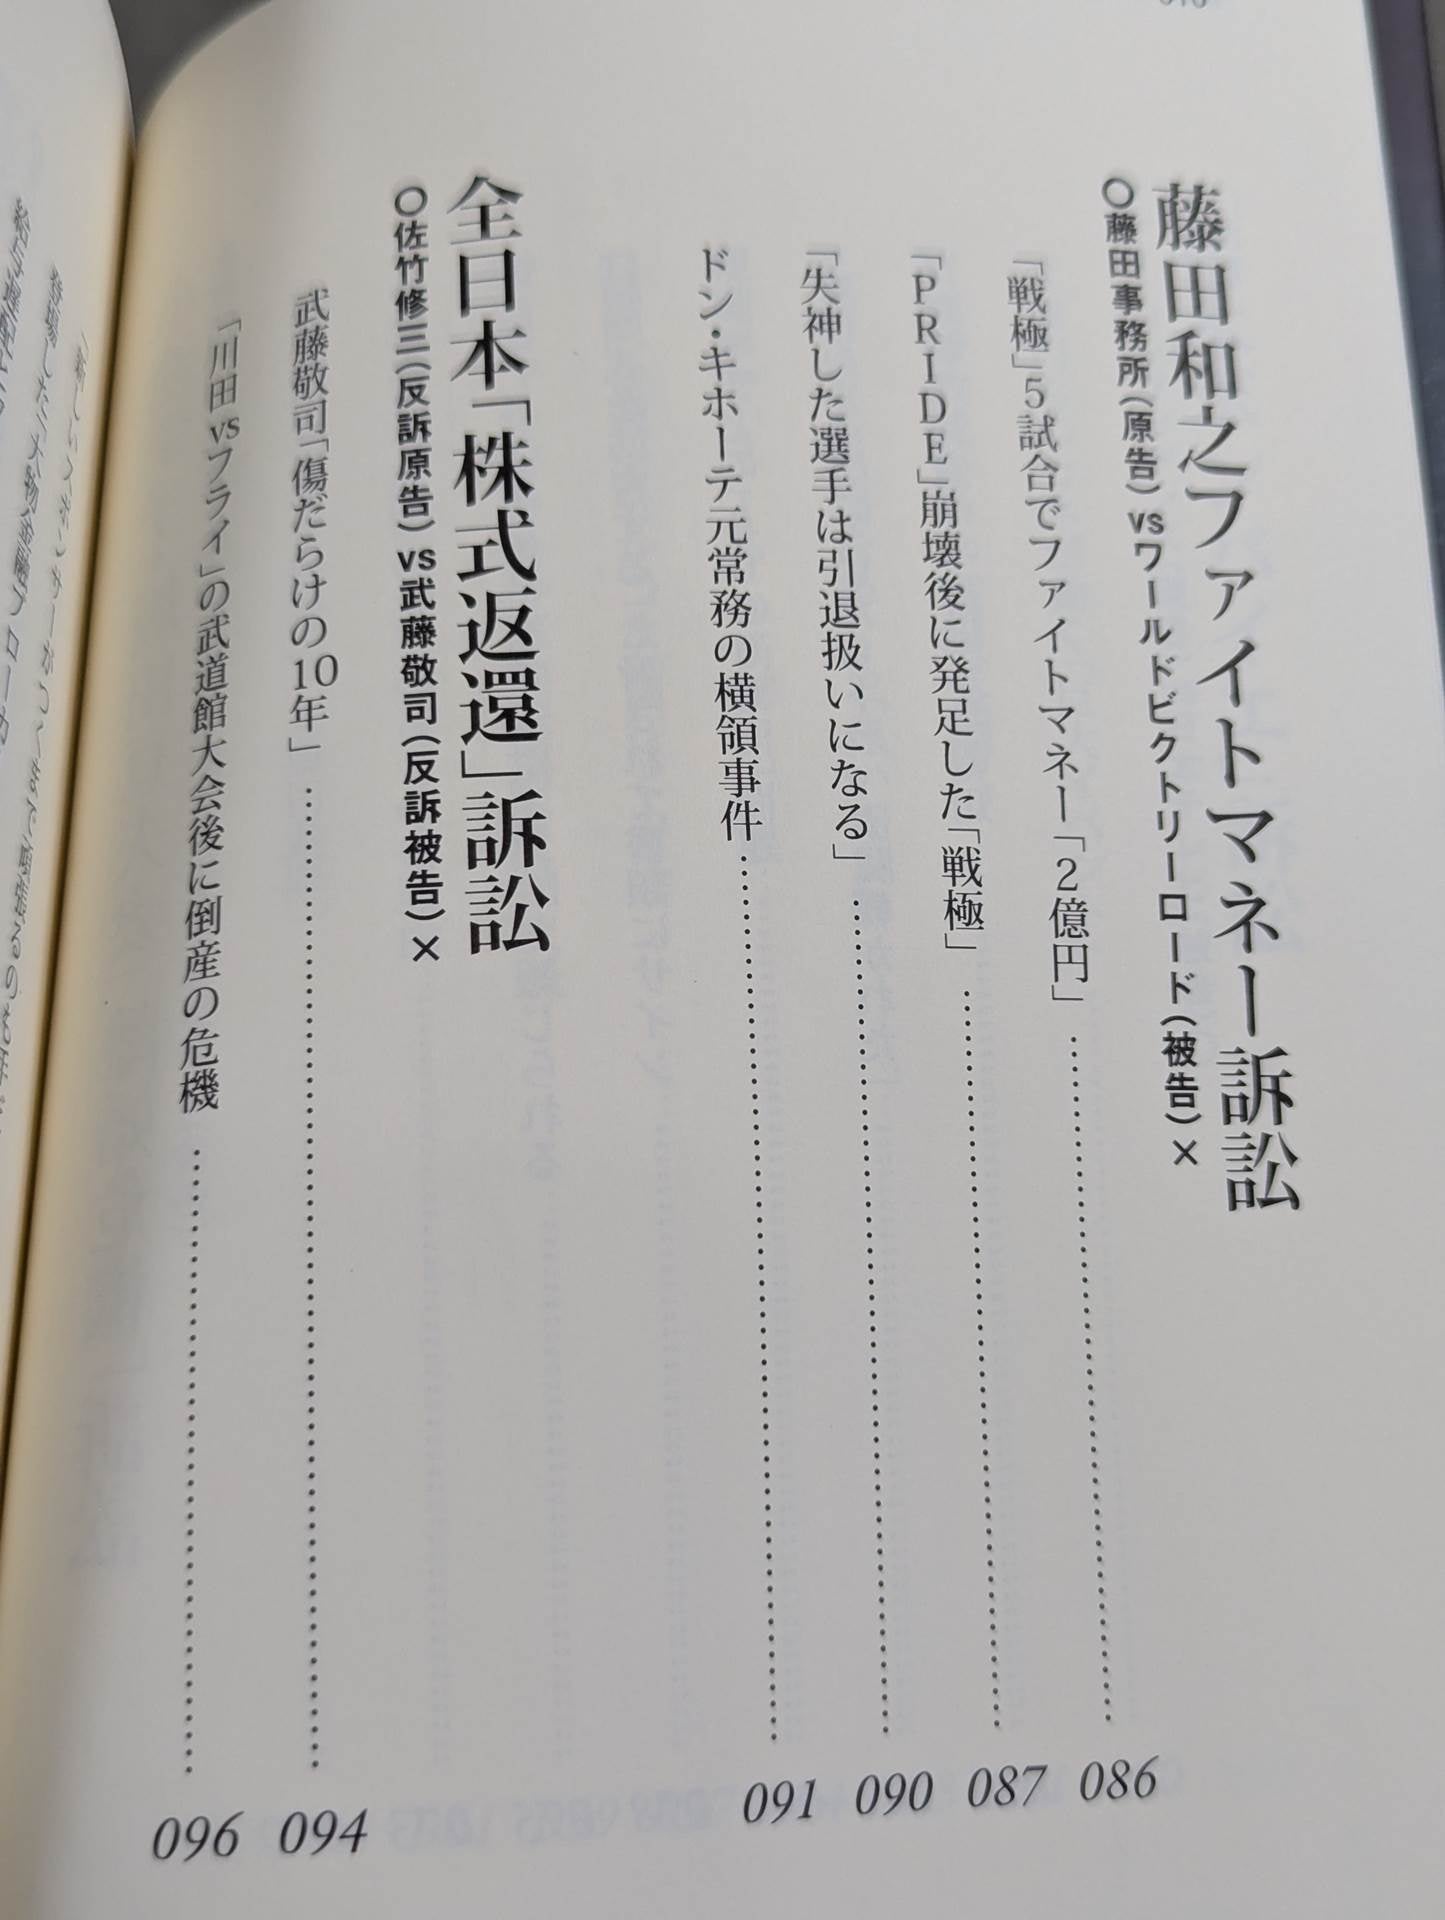 藤田和之ファイトマネー訴訟
○藤田事務所(原告)vsワールドビクトリーロード(被告)×
「戦極」5試合でファイトマネー「2億円」 086
「PRIDE」崩壊後に発足した「戦極」 087
「失神した選手は引退扱いになる」 090
ドン・キホーテ元常務の横領事件 091
全日本「株式返還」訴訟
○佐竹修三(反訴原告)vs武藤敬司(反訴被告)×
武藤敬司「傷だらけの10年」 094
「川田vsフライ」の武道館大会後に倒産の危機 096